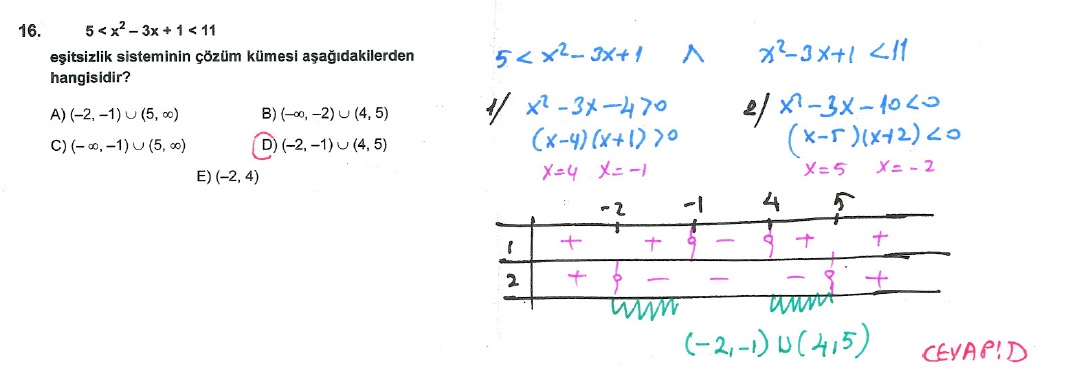 16. 5 < x² – 3x + 1 < 11
eşitsizlik sisteminin çözüm kümesi aşağıdakilerden
hangisidir?
A) (–2, –1) ∪ (5, ∞) B) (–∞, –2) ∪ (4, 5)
C) (– ∞, –1) ∪ (5, ∞) D) (–2, –1) ∪ (4, 5)
E) (–2, 4)
5 < x² – 3x+1 ∧ x² – 3x+1 < 11
1/ x² – 3x – 4 > 0 2/ x² – 3x – 10 < 0
(x–4)(x+1) > 0 (x–5)(x+2) < 0
x=4 x=–1 x=5 x=–2
–2 –1 4 5
1 + + – + +
2 + – – – +
(–2,–1) ∪ (4,5)
CEVAP! D